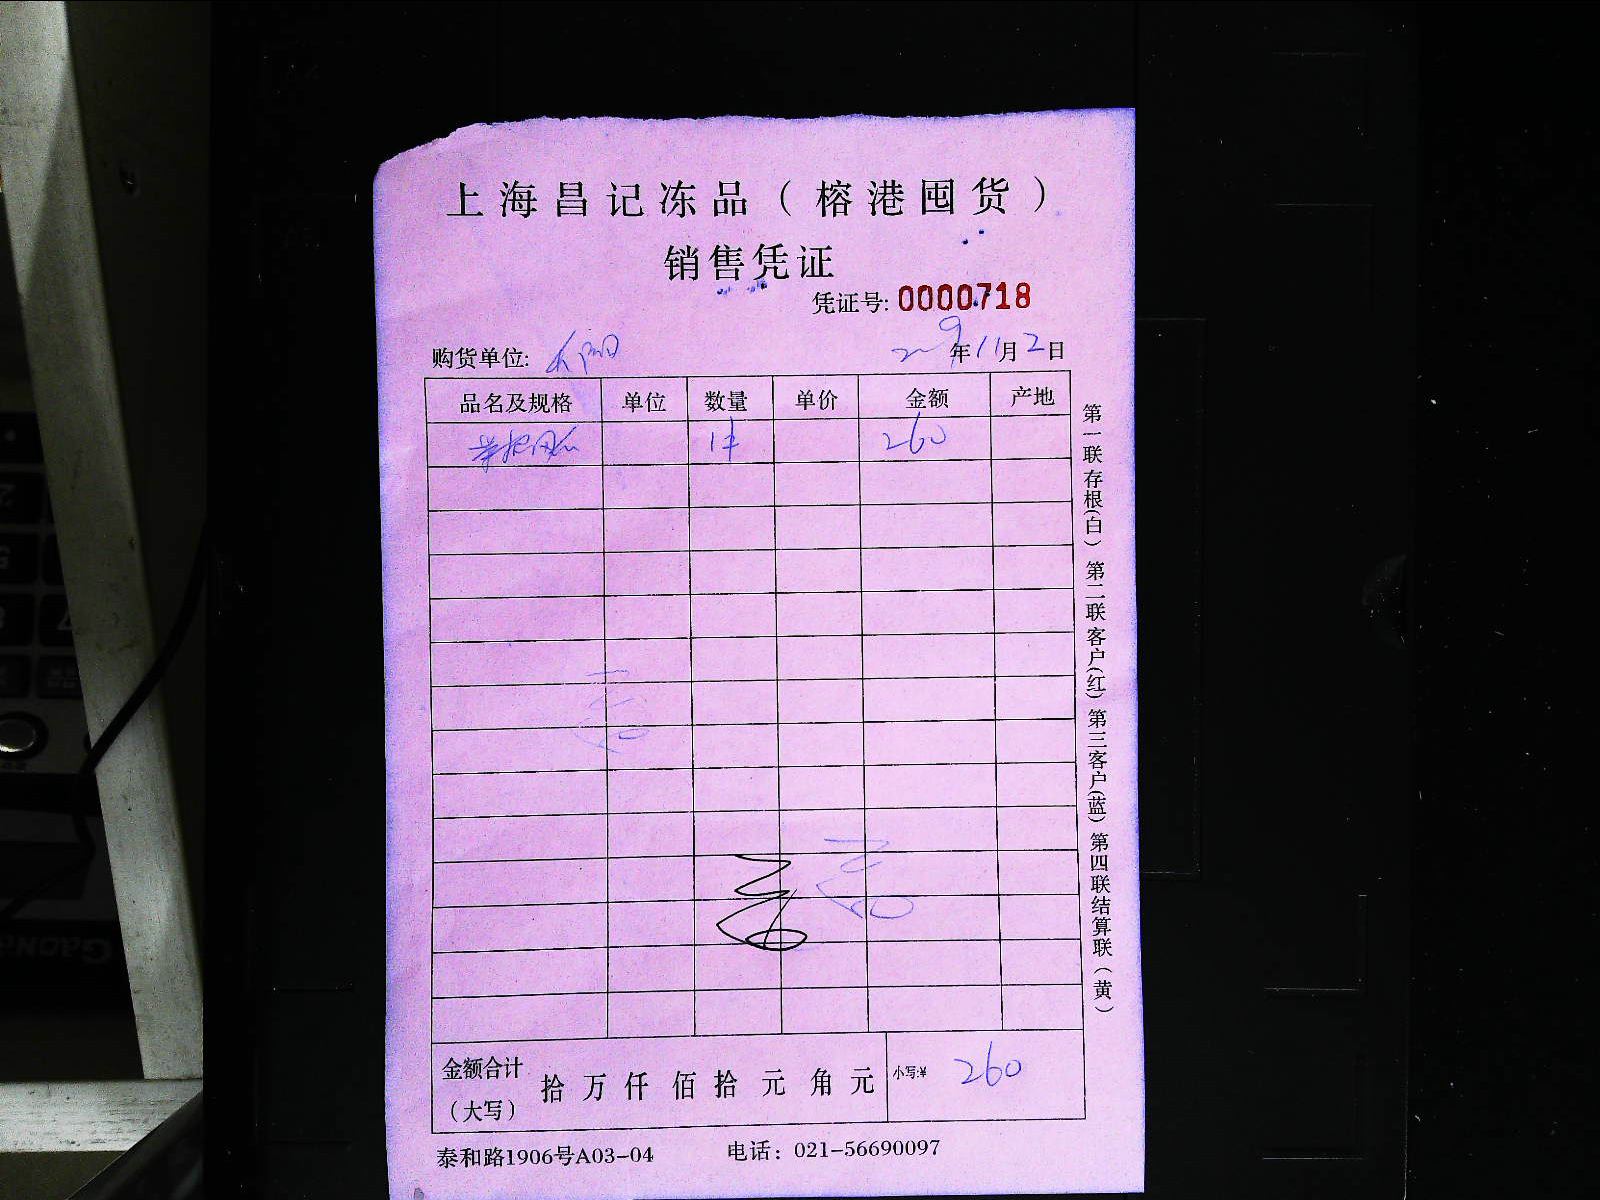 上海昌记冻品（榕港囤货）
销售凭证
凭证号: 0000718
购货单位:
9年11月2日
品名及规格 单位 数量 单价 金额 产地
1件 260
金额合计（大写） 拾 万 仟 佰 拾 元 角 元 小写:¥ 260
泰和路1906号A03-04 电话：021-56690097
第一联存根(白) 第二联客户(红) 第三客户(蓝) 第四联结算联(黄)